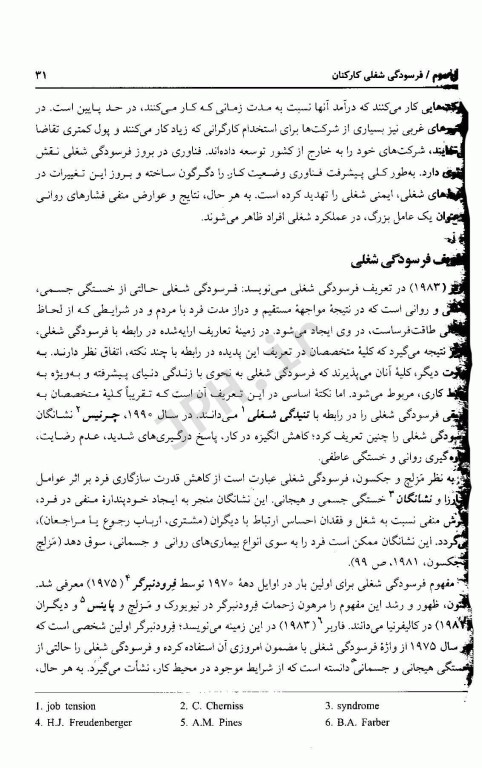 سوم / فرسودگی شغلی کارکنان ۳۱
کار می‌کنند که درآمد آنها نسبت به مدت زمانی که کار می‌کنند، در حد پایین است. در
غربی نیز بسیاری از شرکت‌ها برای استخدام کارگرانی که زیاد کار می‌کنند و پول کمتری تقاضا
شرکت‌های خود را به خارج از کشور توسعه داده‌اند. فناوری در بروز فرسودگی شغلی نقش
دارد. به‌طور کلی پیشرفت فناوری وضعیت کار را دگرگون ساخته و بروز این تغییرات در
شغلی، ایمنی شغلی را تهدید کرده است. به هر حال، نتایج و عوارض منفی فشارهای روانی
یک عامل بزرگ، در عملکرد شغلی افراد ظاهر می‌شوند.
فرسودگی شغلی
(۱۹۸۳) در تعریف فرسودگی شغلی می‌نویسد: فرسودگی شغلی حالتی از خستگی جسمی،
و روانی است که در نتیجهٔ مواجههٔ مستقیم و دراز مدت فرد با مردم و در شرایطی که از لحاظ
طاقت‌فرساست، در وی ایجاد می‌شود. در زمینهٔ تعاریف ارایه‌شده در رابطه با فرسودگی شغلی،
نتیجه می‌گیرد که کلیهٔ متخصصان در تعریف این پدیده در رابطه با چند نکته، اتفاق نظر دارند. به
دیگر، کلیهٔ آنان می‌پذیرند که فرسودگی شغلی به نحوی با زندگی دنیای پیشرفته و به‌ویژه به
کاری، مربوط می‌شود. اما نکتهٔ اساسی در این تعریف آن است که تقریباً کلیهٔ متخصصان به
فرسودگی شغلی را در رابطه با تنیدگی شغلی۱ می‌دانند. در سال ۱۹۹۰، چرنیس۲ نشانگان
شغلی را چنین تعریف کرد؛ کاهش انگیزه در کار، پاسخ درگیری‌های شدید، عدم رضایت،
روانی و خستگی عاطفی.
به نظر مَزلچ و جکسون، فرسودگی شغلی عبارت است از کاهش قدرت سازگاری فرد بر اثر عوامل
و نشانگان۳ خستگی جسمی و هیجانی. این نشانگان منجر به ایجاد خودپندارهٔ منفی در فرد،
منفی نسبت به شغل و فقدان احساس ارتباط با دیگران (مشتری، ارباب رجوع یا مراجعان)،
این نشانگان ممکن است فرد را به سوی انواع بیماری‌های روانی و جسمانی، سوق دهد (مَزلچ
۱۹۸۱، ص ۹۹).
مفهوم فرسودگی شغلی برای اولین بار در اوایل دههٔ ۱۹۷۰ توسط فِرودنبرگر۴ (۱۹۷۵) معرفی شد.
ظهور و رشد این مفهوم را مرهون زحمات فِرودنبرگر در نیویورک و مَزلچ و پاینس۵ و دیگران
در کالیفرنیا می‌دانند. فاربر۶ (۱۹۸۳) در این زمینه می‌نویسد؛ فِرودنبرگر اولین شخصی است که
سال ۱۹۷۵ از واژهٔ فرسودگی شغلی با مضمون امروزی آن استفاده کرده و فرسودگی شغلی را حالتی از
خستگی هیجانی و جسمانی دانسته است که از شرایط موجود در محیط کار، نشأت می‌گیرد. به هر حال،
1. job tension 2. C. Cherniss 3. syndrome
4. H.J. Freudenberger 5. A.M. Pines 6. B.A. Farber